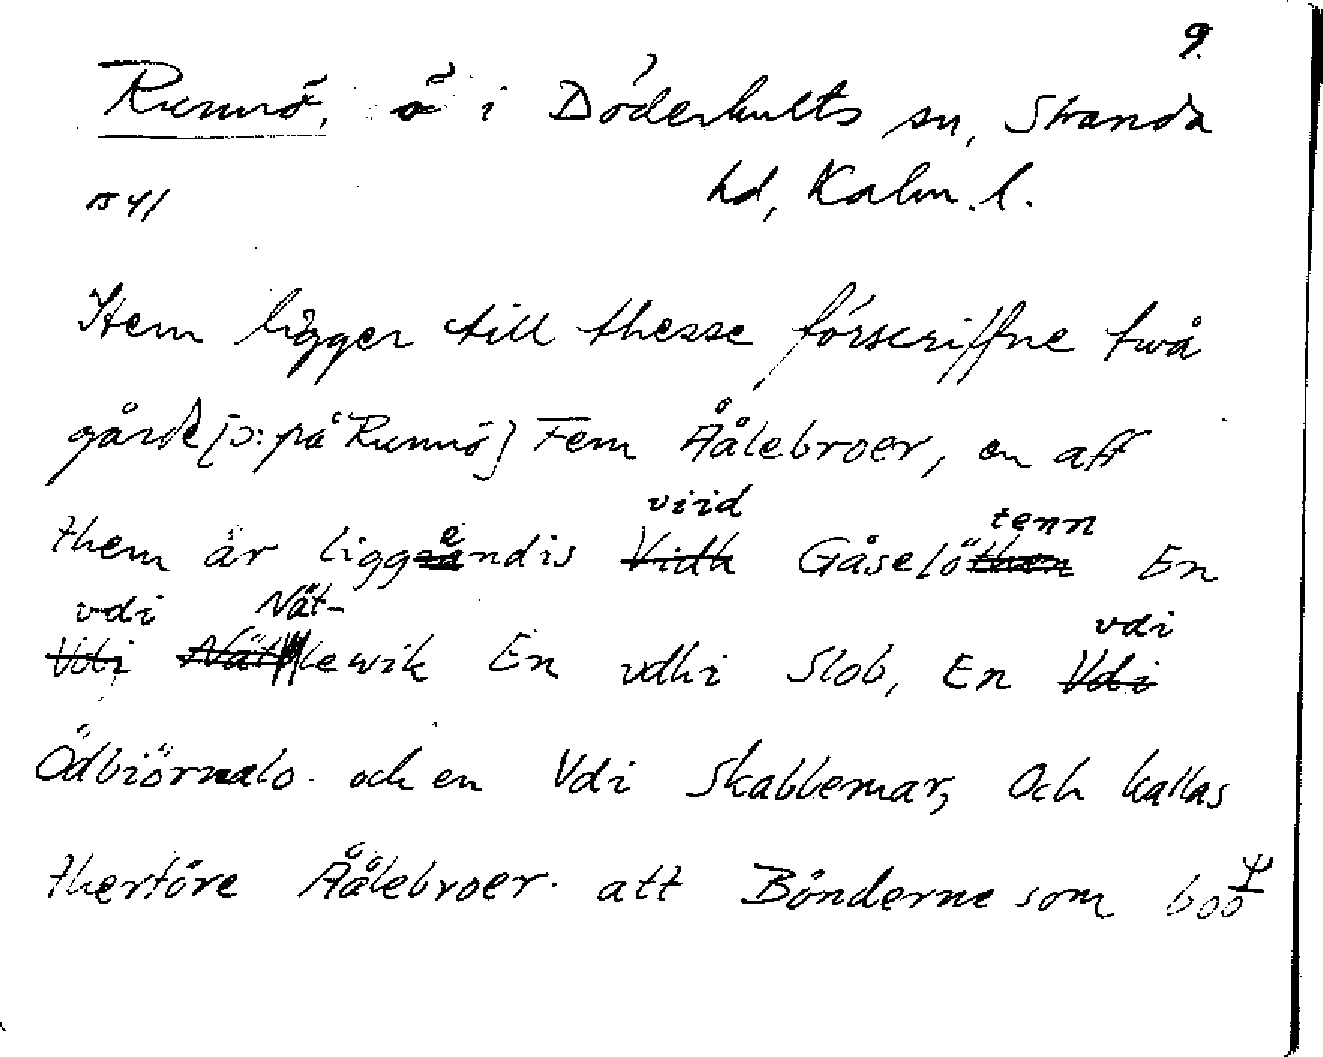 9.
Runnö, ö i Döderhults sn, Stranda
1541 hd, Kalm. l.
Item ligger till thesse förscriffne två
gårde [ɔ: på Runnö] Fem Åålebroer, en aff
viid tenn
them är liggendis Vidh Gåselöthen En
vdi Nät- vdi
Vdi Nätlewik En vdhi Slob, En Vdi
Ödbiörnalo och en Vdi Skabbemar, Och kallas
therföre Åålebroer att Bönderne som boo